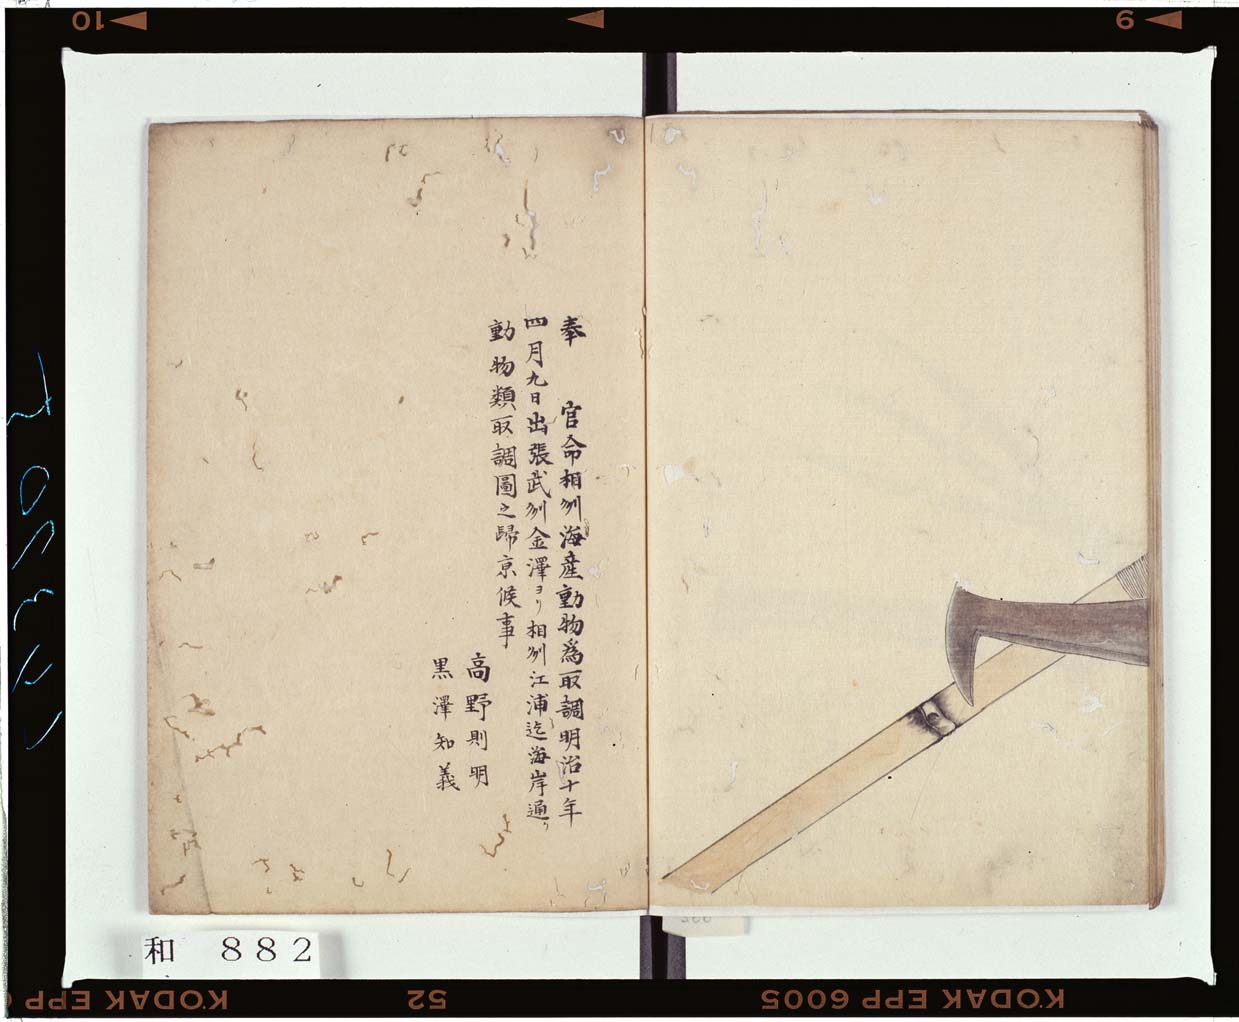 10
9
奉　官命相州海産動物為取調明治十年
四月九日出張武州金澤ヨリ相州江浦迄海岸通リ
動物類取調圖之歸京候事
高野則明
黒澤知義
和 882
KODAK EPP 6005
52
KODAK EPP